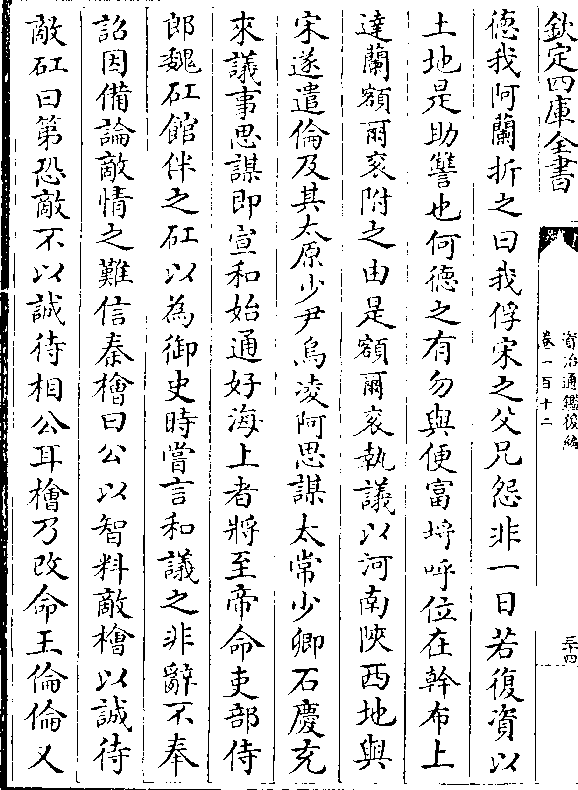 欽定四庫全書
資治通鑑後編
卷一百十二
三十四
德我阿蘭折之曰我俘宋之父兄怨非一日若復資以
土地是助讐也何德之有勿與便富埒呼位在幹布上
達蘭額爾衮附之由是額爾衮執議以河南陜西地與
宋遂遣倫及其太原少尹烏凌阿思謀太常少卿石慶充
來議事思謀即宣和始通好海上者將至帝命吏部侍
郎魏矼館伴之矼以為御史時嘗言和議之非辭不奉
詔因備論敵情之難信秦檜曰公以智料敵檜以誠待
敵矼曰第恐敵不以誠待相公耳檜乃改命王倫倫又